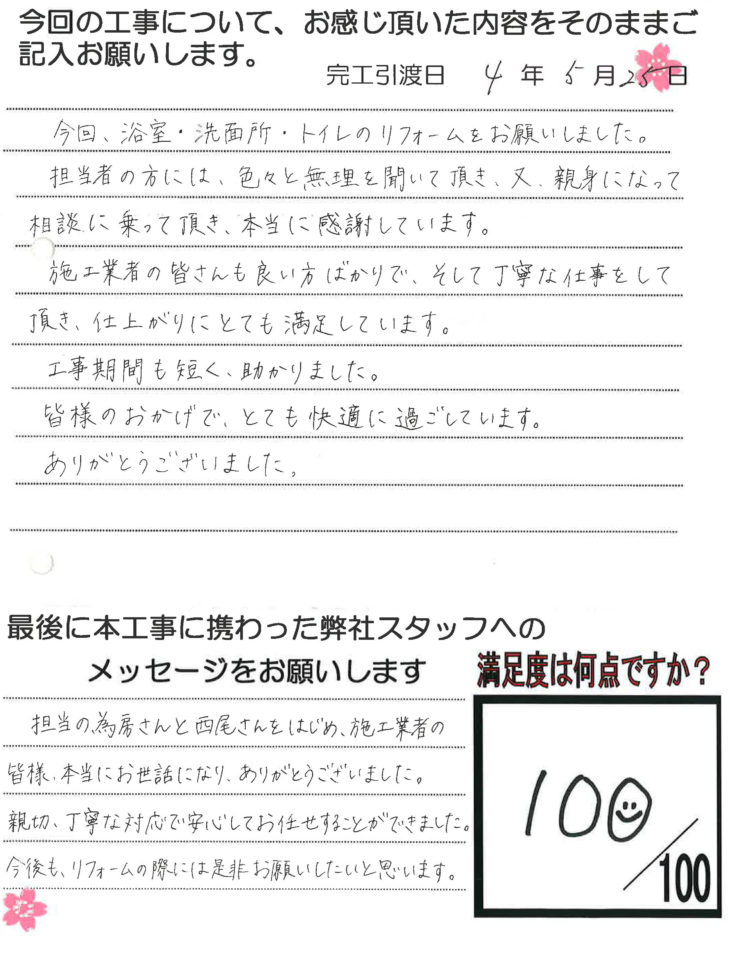 今回の工事について、お感じ頂いた内容をそのままご
記入お願いします。
完工引渡日 4年5月25日
今回、浴室・洗面所・トイレのリフォームをお願いしました。
担当者の方には、色々と無理を聞いて頂き、又、親身になって
相談に乗って頂き、本当に感謝しています。
施工業者の皆さんも良い方ばかりで、そして丁寧な仕事をして
頂き、仕上がりにとても満足しています。
工事期間も短く、助かりました。
皆様のおかげで、とても快適に過ごしています。
ありがとうございました。
最後に本工事に携わった弊社スタッフへの
メッセージをお願いします
担当の為房さんと西尾さんをはじめ、施工業者の
皆様、本当にお世話になり、ありがとうございました。
親切、丁寧な対応で安心してお任せすることができました。
今後も、リフォームの際には是非お願いしたいと思います。
満足度は何点ですか？
100
/100